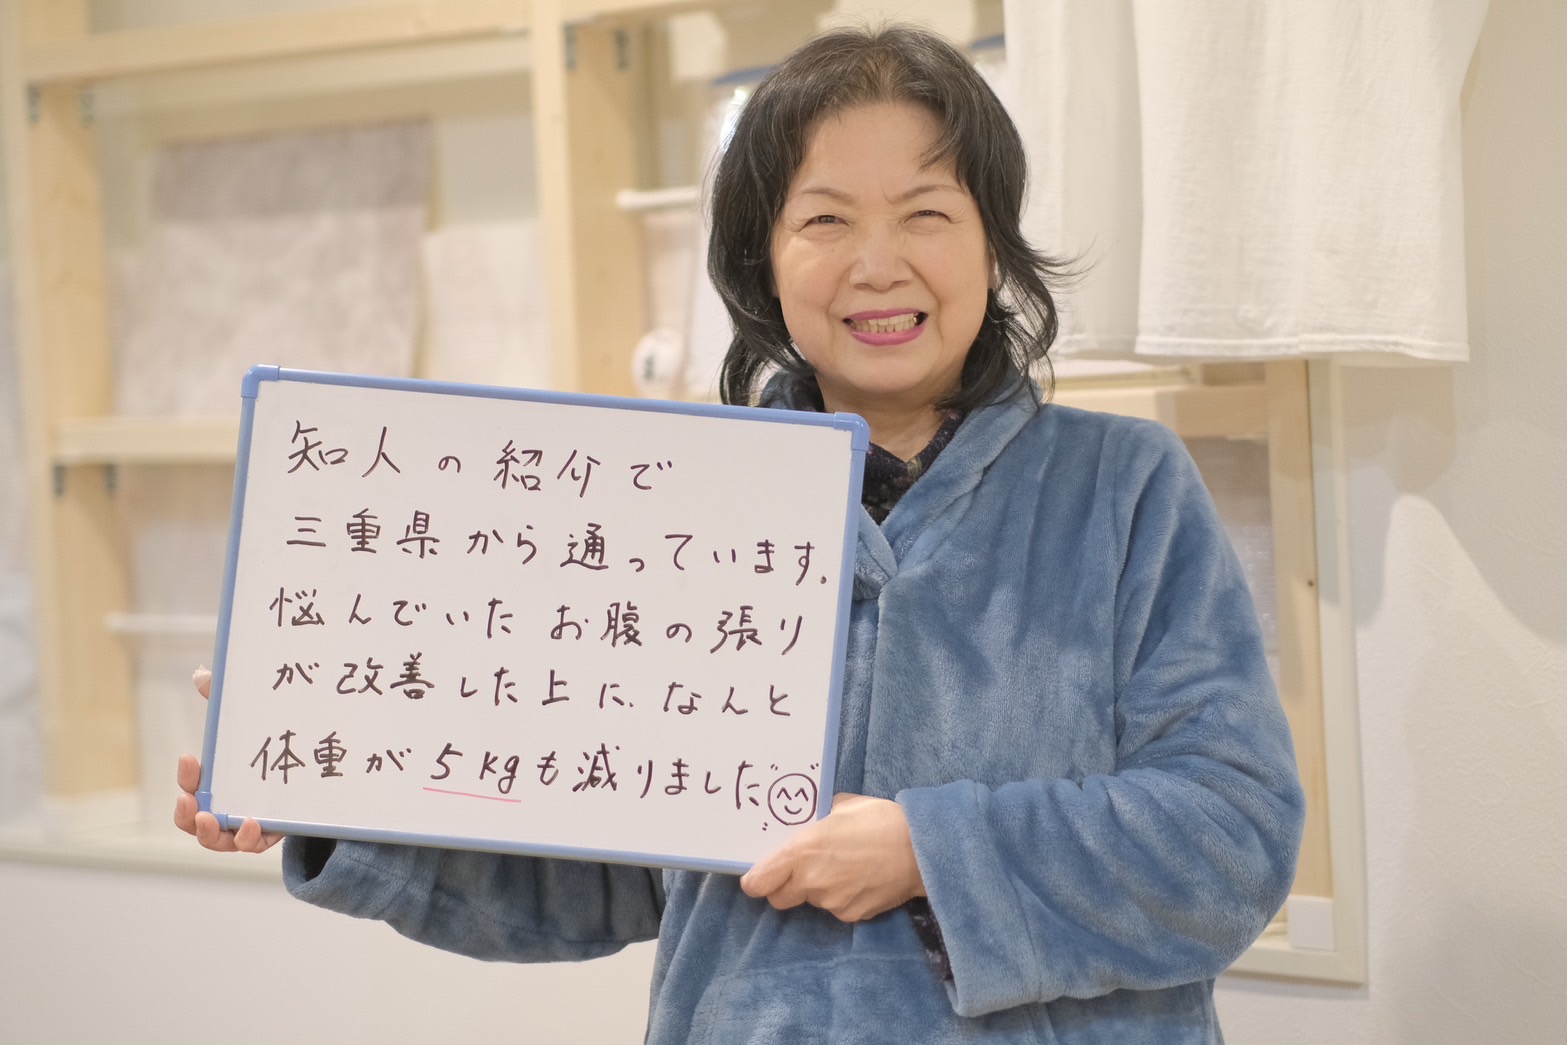 知人の紹介で
三重県から通っています。
悩んでいたお腹の張り
が改善した上に、なんと
体重が5kgも減りました